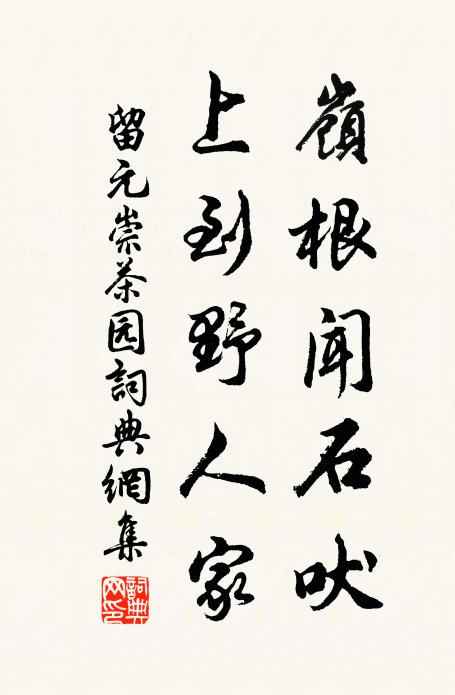 嶺根聞石吠
上到野人家
留元崇茶园詞典網集
詞典网印